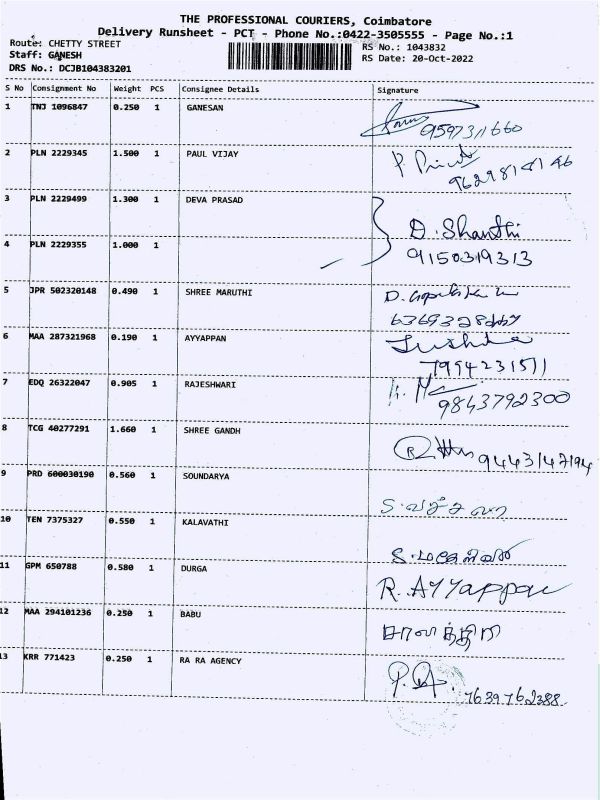 THE PROFESSIONAL COURIERS, Coimbatore
Delivery Runsheet - PCT - Phone No.:0422-3505555 - Page No.:1
Route: CHETTY STREET RS No.: 1043832
Staff: GANESH RS Date: 20-Oct-2022
DRS No.: DCJB104383201
S No Consignment No Weight PCS Consignee Details Signature
1 TNJ 1096847 0.250 1 GANESAN
9597311660
2 PLN 2229345 1.500 1 PAUL VIJAY
3 PLN 2229499 1.300 1 DEVA PRASAD
D. Shanthi
4 PLN 2229355 1.000 1
9150319313
5 JPR 502320148 0.490 1 SHREE MARUTHI
6 MAA 287321968 0.190 1 AYYAPPAN
7994231511
7 EDQ 26322047 0.905 1 RAJESHWARI
9843792300
8 TCG 40277291 1.660 1 SHREE GANDH
9443147194
9 PRD 600030190 0.560 1 SOUNDARYA
ச. வச்சலா
10 TEN 7375327 0.550 1 KALAVATHI
11 GPM 650788 0.580 1 DURGA
R. AYYappan
12 MAA 294101236 0.250 1 BABU
13 KRR 771423 0.250 1 RA RA AGENCY
7639762388